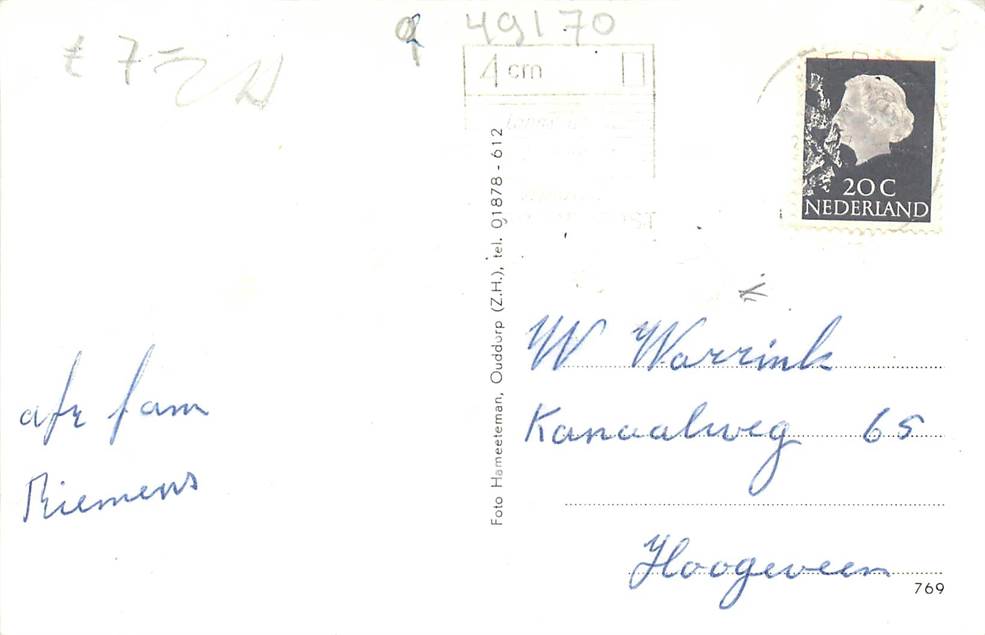 49170
£ 7 =
4 cm
20 C
NEDERLAND
Foto Hameeteman, Ouddorp (Z.H.), tel. 01878 - 612
W Warrink
Kanaalweg 65
Hoogeveen
afz fam
Riemens
769